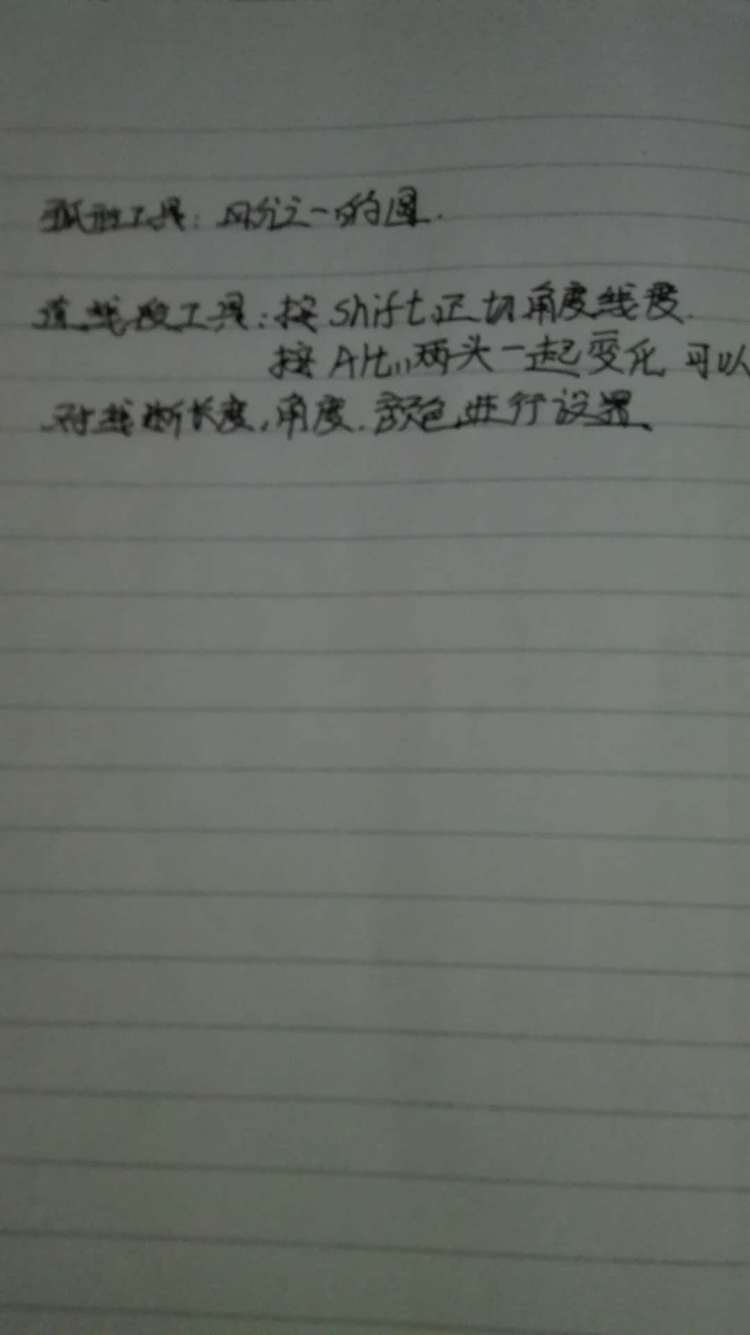 弧形工具:四分之一的圆.
直线段工具:按shift正切角度线段.
按Alt,两头一起变化 可以
对线断长度,角度.颜色进行设置、